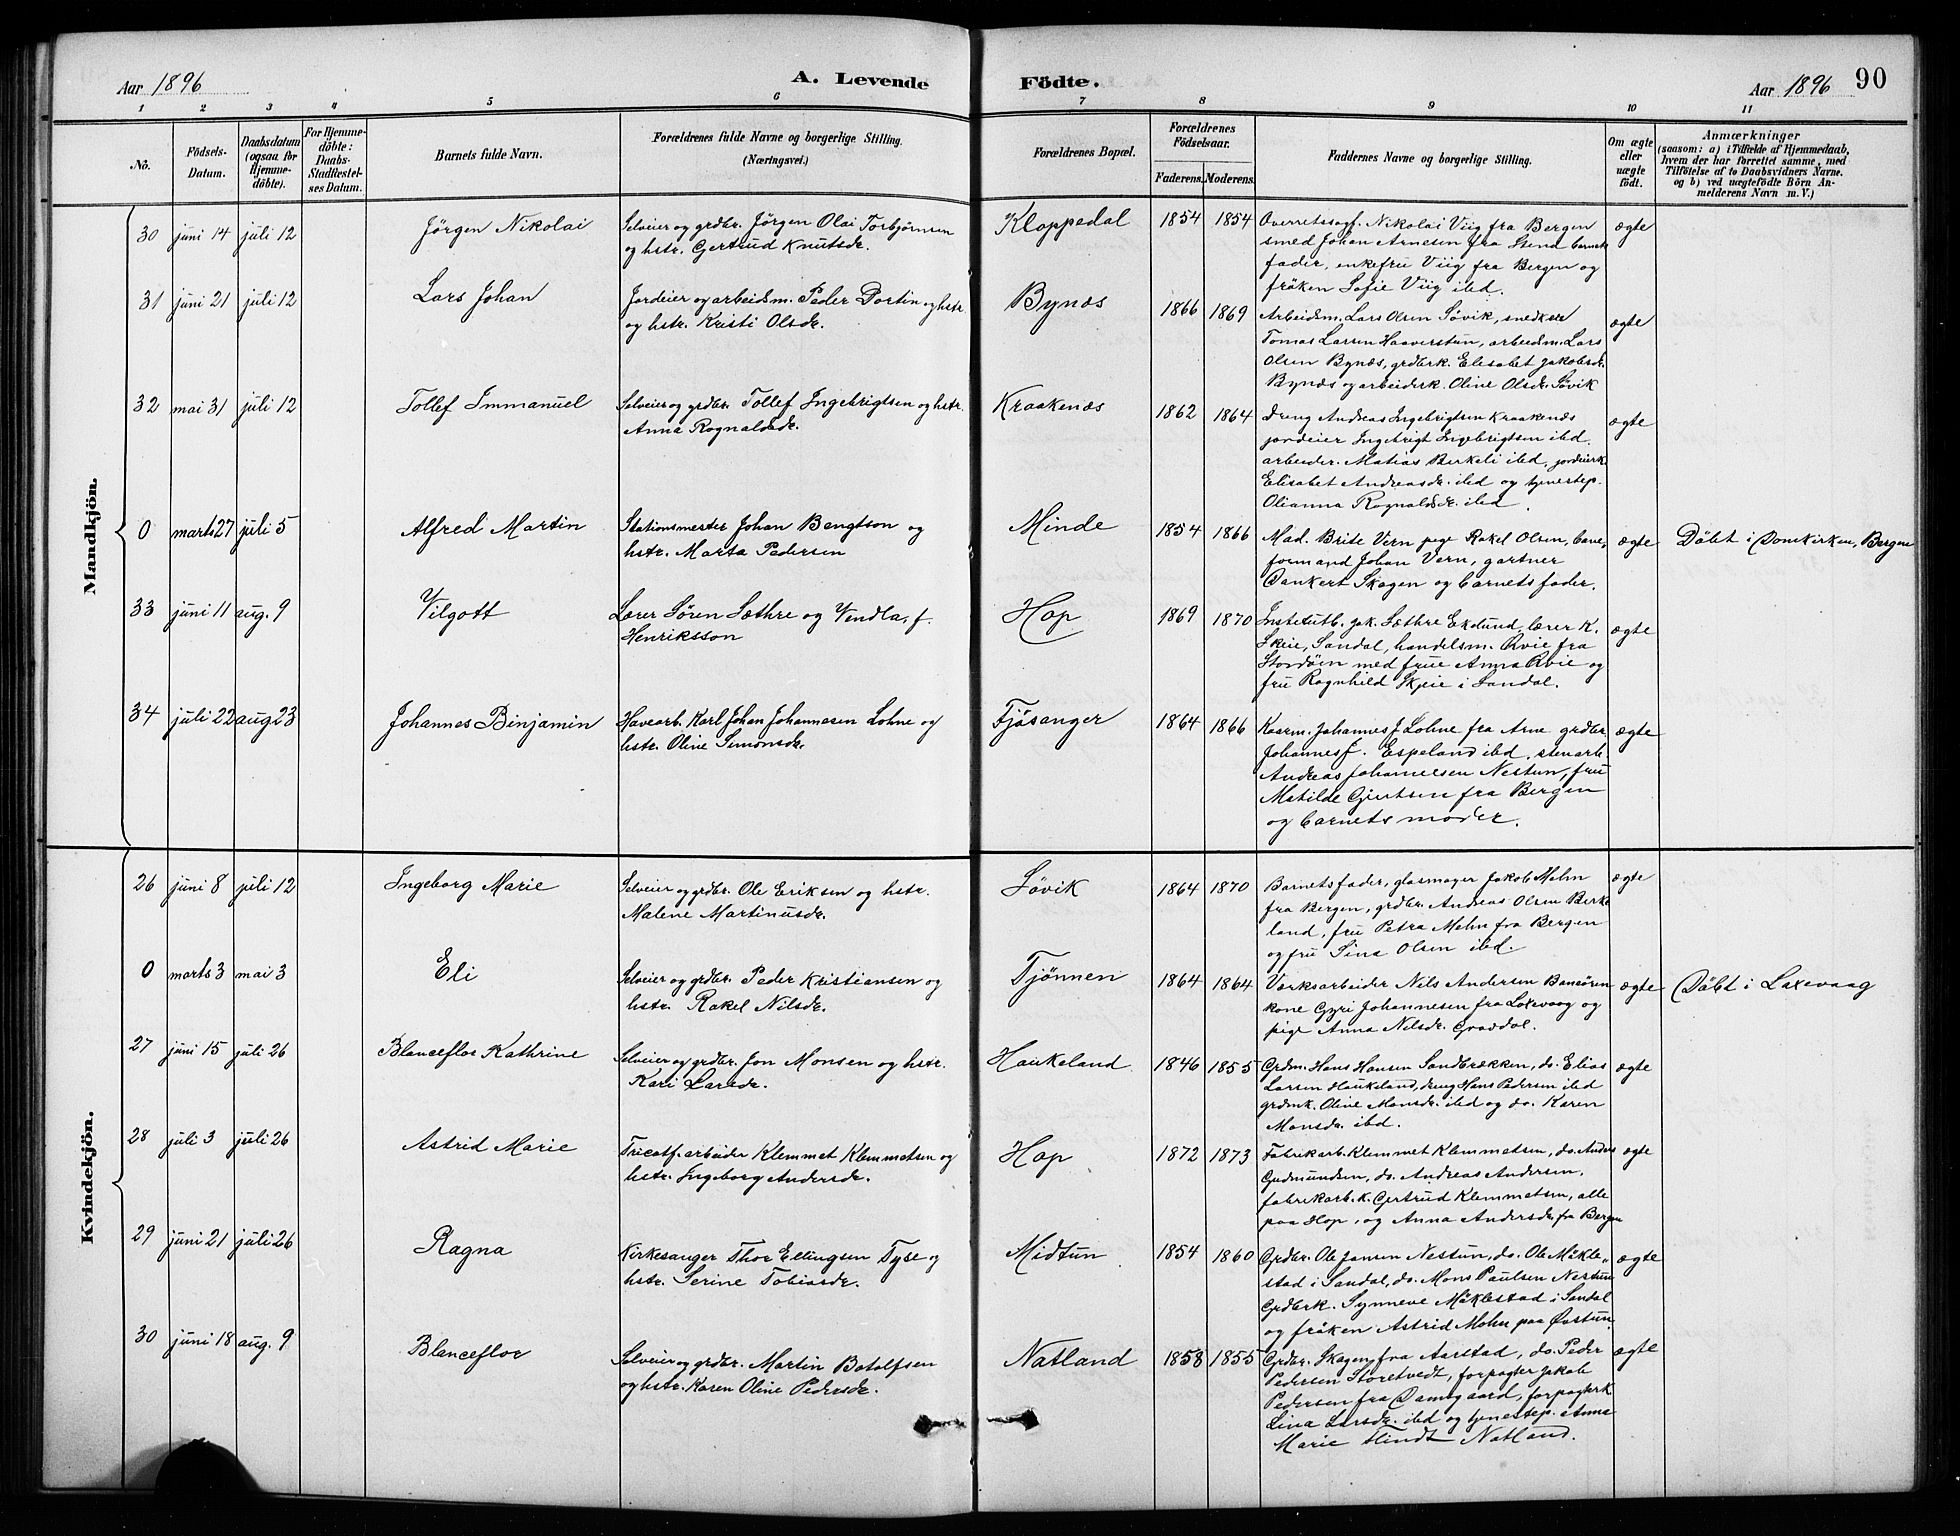 Aar 1896 A. Levende Födte. Aar 1896 90
1 2 3 4 5 6 7 8 9 10 11
No.
Födsels-Datum.
Daabsdatum (ogsaa for Hjemmedöbte).
For Hjemmedöbte: Daabs-Stadfæstelses Datum.
Barnets fulde Navn.
Forældrenes fulde Navne og borgerlige Stilling. (Næringsvei.)
Forældrenes Bopæl.
Forældrenes Födselsaar.
Faderens. Moderens.
Faddernes Navne og borgerlige Stilling.
Om ægte eller uægte födt.
Anmærkninger
(saasom: a) i Tilfælde af Hjemmedaab,
hvem der har forrettet samme, med
Tilföielse af to Daabsvidners Navne.
og b) ved uægtefödte Börn An-
melderens Navn m. V.)
Mandkjön.
30 juni 14 juli 12 Jörgen Nikolai
Selveier og grdbr. Jörgen Olai Torbjörnsen
og hstr. Gertrud Knutsdr.
Kloppedal 1854 1854
Overretssagf. Nikolai Viig fra Bergen
smed Johan Arnesen fra Stend barnets
fader, enkefru Viig fra Bergen og
fröken Sofie Viig ibd.
ægte
31 juni 21 juli 12 Lars Johan
Jordeier og arbeidsm. Peder Dortin og hstr.
og hstr. Kristi Olsdr.
Bynæs 1866 1869
Arbeidsm. Lars Olsen Sövik, snedker
Tomas Larsen Haaverstun, arbeidsm. Lars
Olsen Bynæs, grdbrk. Elisabet Jakobsdr.
Bynæs og arbeiderk. Oline Olsdr. Sövik
ægte
32 mai 31 juli 12 Tollef Immanuel
Selveier og grdbr. Tollef Ingebrigtsen og hstr.
Anna Rognaldsdr.
Kraakenæs 1862 1864
Dreng Andreas Ingebrigtsen Kraakenæs
jordeier Ingebrigt Ingebrigtsen ibd.
arbeider. Matias Birkeli ibd, jordeierk.
Elisabet Andreasdr. ibd og tjenestep.
Olianna Rognaldsdr. ibd.
ægte
0 marts 27 juli 5 Alfred Martin
Stationsmester Johan Bengtson og
hstr. Marta Pedersen
Minde 1854 1866
Mad. Brite Vern pige Rakel Olsen, bane-
formand Johan Vern, gartner
Dankert Skagen og barnets fader.
ægte
Döbt i Domkirken, Bergen
33 juni 11 aug. 9 Vilgott
Lærer Sören Sæthre og Vendla, f.
Henriksson
Hop 1869 1870
Institutb. Jak. Sæthre Eklund, lærer K.
Skeie, Sandal, handelsm. Kvie fra
Stordöen med frue Anna Kvie og
fru Ragnhild Skjeie i Sandal.
ægte
34 juli 22 aug 23 Johannes Binjamin
Havearb. Karl Johan Johannesen Lohne og
hstr. Oline Simonsdr.
Fjösanger 1864 1866
Kaarm. Johannes J Lohne fra Arne grdbr
Johannes J. Espeland ibd, stenarb.
Andreas Johannesen Nestun, fru
Matilde Gjertsen fra Bergen
og barnets moder.
ægte
Kvindekjön.
26 juni 8 juli 12 Ingeborg Marie
Selveier og grdbr. Ole Eriksen og hstr.
Malene Martinusdr.
Sövik 1864 1870
Barnets fader, glasmager Jakob Mohn
fra Bergen, grdbr. Andreas Olsen Birke
land, fru Petra Mohn fra Bergen
og fru Sina Olsen ibd.
ægte
0 marts 3 mai 3 Eli
Selveier og grdbr. Peder Kristiansen og
hstr. Rakel Nilsdr.
Tjönnen 1864 1864
Værksarbeider Nils Andersen
kone Gyri Johannesen fra Laxevaag og
pige Anna Nilsdr. Gravdal.
ægte
Döbt i Laxevaag
27 juni 15 juli 26 Blanceflor Kathrine
Selveier og grdbr. Jon Monsen og hstr.
Kari Larsdr.
Haukeland 1846 1855
Grdm. Hans Hansen Sandbrækken, do. Elias
Larsen Haukeland, dreng Hans Pedersen ibd
grdmk. Oline Monsdr. ibd og do. Karen
Monsdr. ibd.
ægte
28 juli 3 juli 26 Astrid Marie
Tricotf.arbeider Klemmet Klemmetsen og
hstr. Ingeborg Andersdr.
Hop 1872 1873
Fabrikarb. Klemmet Klemmetsen, do. Anders
Gudmundsen, do. Andreas Andersen,
fabrikarb.k. Gertrud Klemmetsen, alle
paa Hop, og Anna Andersdr. fra Bergen
ægte
29 juni 21 juli 26 Ragna
Kirkesanger Thor Ellingsen Tyse og
hstr. Serine Tobiasdr.
Midtun 1854 1860
Grdbr. Ole Jansen Nestun, do. Ole Mökle-
stad i Sandal, do. Mons Paulsen Nestun
Grdbrk. Synneve Möklestad i Sandal
og fröken Astrid Mohn paa Övstun.
ægte
30 juni 18 aug. 9 Blanceflor
Selveier og grdbr. Martin Botolfsen
og hstr. Karen Oline Pedersdr.
Natland 1858 1855
Grdbr. Skagen fra Aarstad, do. Peder
Pedersen Storetvedt, forpagter Jakob
Pedersen fra Damsgaard, forpagterk
Lina Larsdr. ibd og tjenestep. Anna
Marie Flindt Natland.
ægte